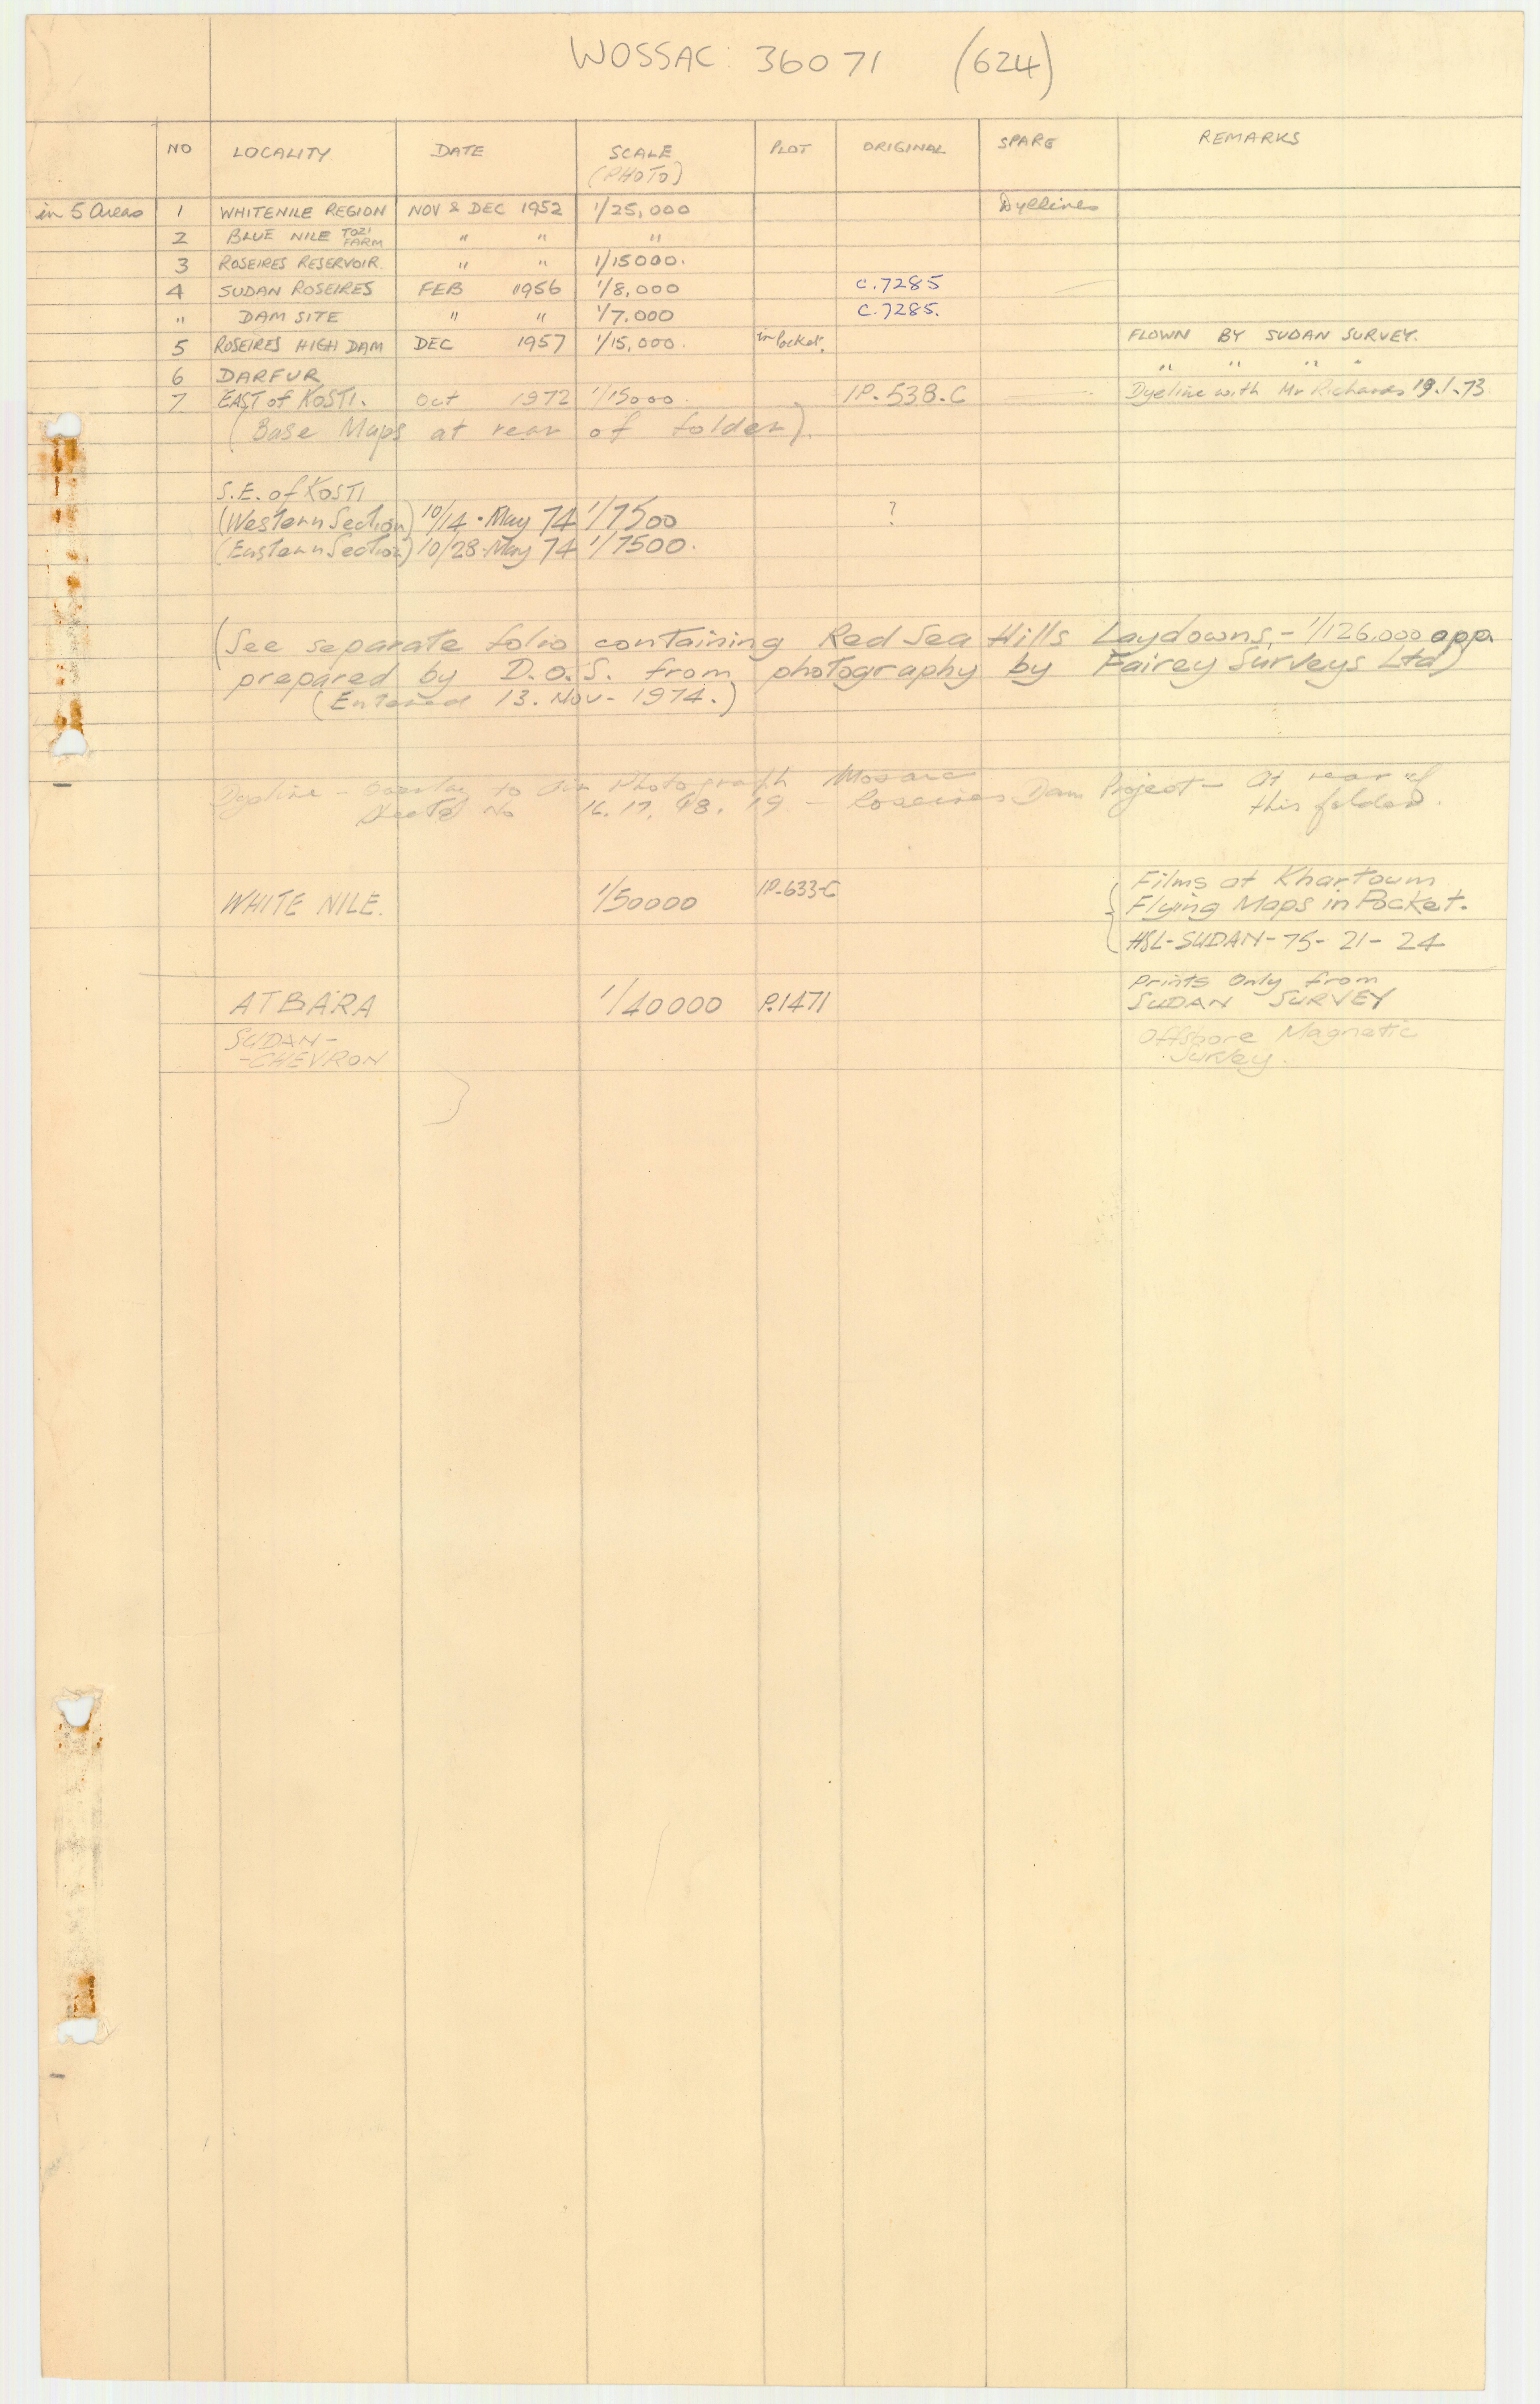 WOSSAC: 36071 (624)
NO LOCALITY DATE SCALE (PHOTO) PLOT ORIGINAL SPARE REMARKS
in 5 Areas 1 WHITENILE REGION NOV & DEC 1952 1/25,000 Dyelines
2 BLUE NILE TOZI FARM " " "
3 ROSEIRES RESERVOIR. " " 1/15000.
4 SUDAN ROSEIRES FEB 1956 1/8,000 C.7285
" DAM SITE " " 1/7.000 C.7285.
5 ROSEIRES HIGH DAM DEC 1957 1/15,000. in Pocket. FLOWN BY SUDAN SURVEY.
6 DARFUR " " " "
7 EAST of KOSTI. Oct 1972 1/15000. IP.538.C Dyeline with Mr Richards 19.1.73.
(Base Maps at rear of folder).
S.E. of KOSTI
(Western Section) 10/14. May 74 1/7500 ?
(Eastern Section) 10/28. May 74 1/7500.
(See separate folio containing Red Sea Hills Laydowns, - 1/126,000 app.
prepared by D.O.S. from photography by Fairey Surveys Ltd)
(Entered 13. Nov - 1974.)
Dyeline - Overlay to Air Photograph Mosaic
Sheets No 16. 17. 18. 19 - Roseires Dam Project - At rear of
this folder.
WHITE NILE. 1/50000 IP-633-C Films at Khartoum
Flying Maps in Pocket.
HSL-SUDAN-75-21-24
ATBARA 1/40000 P.1471 Prints Only from
SUDAN SURVEY
SUDAN- Offshore Magnetic
-CHEVRON Survey.